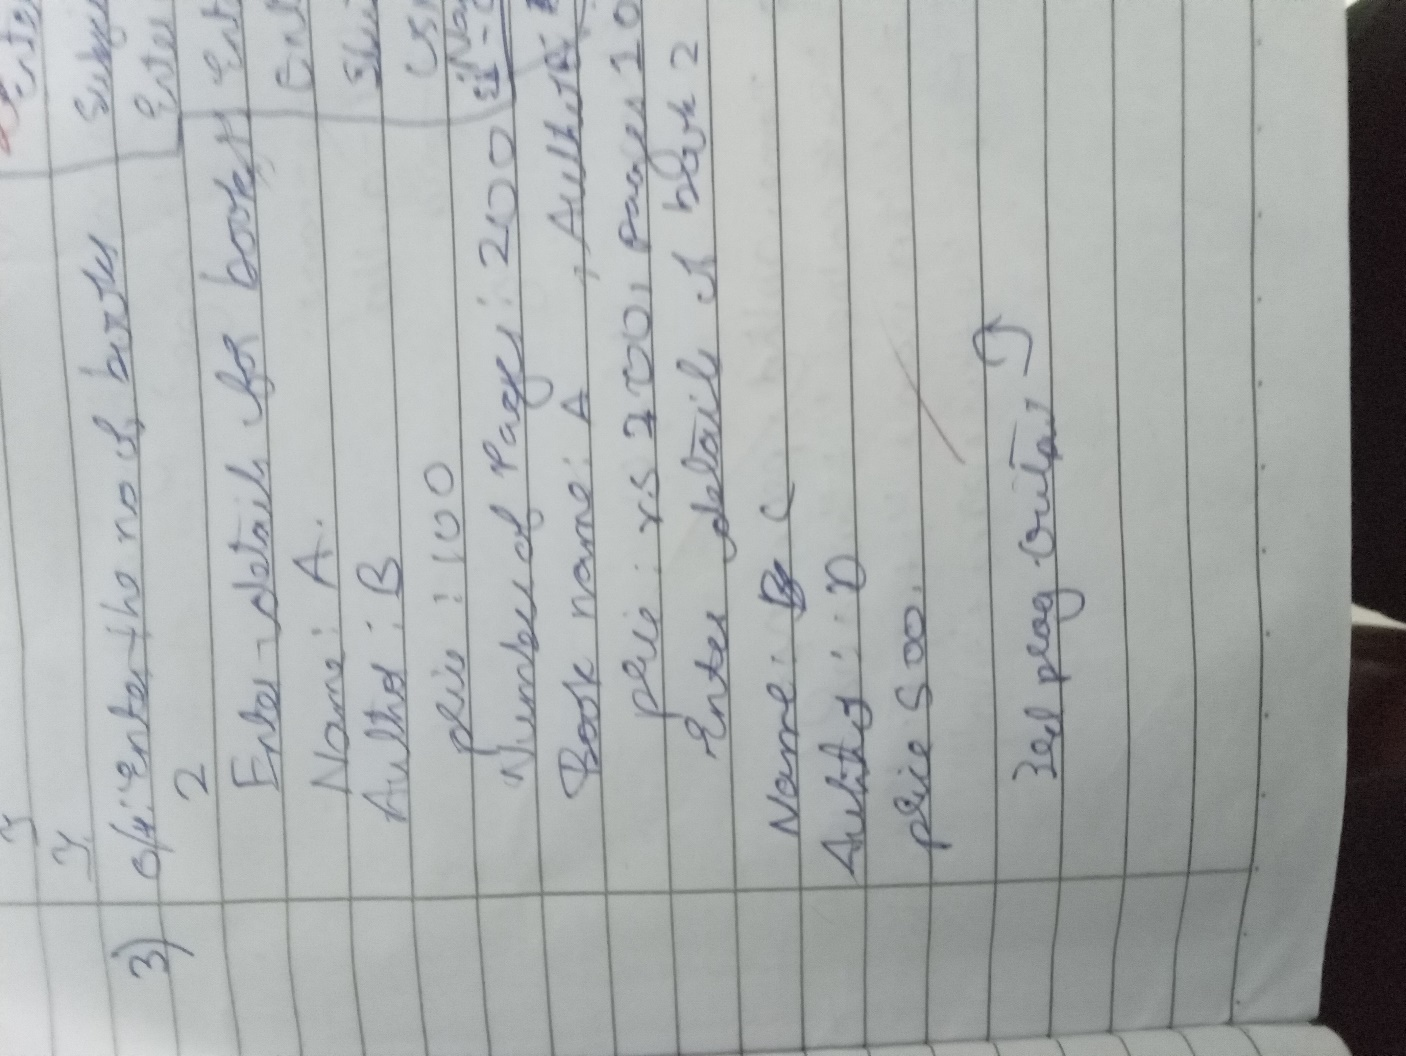 Ente
Subje
Ente
}
}
3) O/P: Enter the no of books
2
Enter details for book 1
Name: A.
Author : B
price : 100
Number of Pages : 200
Book name : A , Author :
price : rs 200, pages 10
Enter details of book 2
Name : C
Author : D
price 500.
3rd prog Output